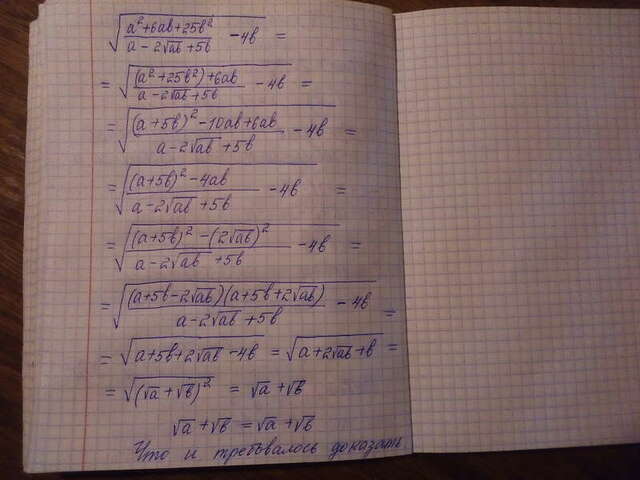 √((a²+6ab+25b²)/(a-2√ab+5b) - 4b) =
= √(((a²+25b²)+6ab)/(a-2√ab+5b) - 4b) =
= √(((a+5b)²-10ab+6ab)/(a-2√ab+5b) - 4b) =
= √(((a+5b)²-4ab)/(a-2√ab+5b) - 4b) =
= √(((a+5b)²-(2√ab)²)/(a-2√ab+5b) - 4b) =
= √(((a+5b-2√ab)(a+5b+2√ab))/(a-2√ab+5b) - 4b) =
= √(a+5b+2√ab-4b) = √(a+2√ab+b) =
= √((√a+√b)²) = √a+√b
√a+√b = √a+√b
Что и требовалось доказать